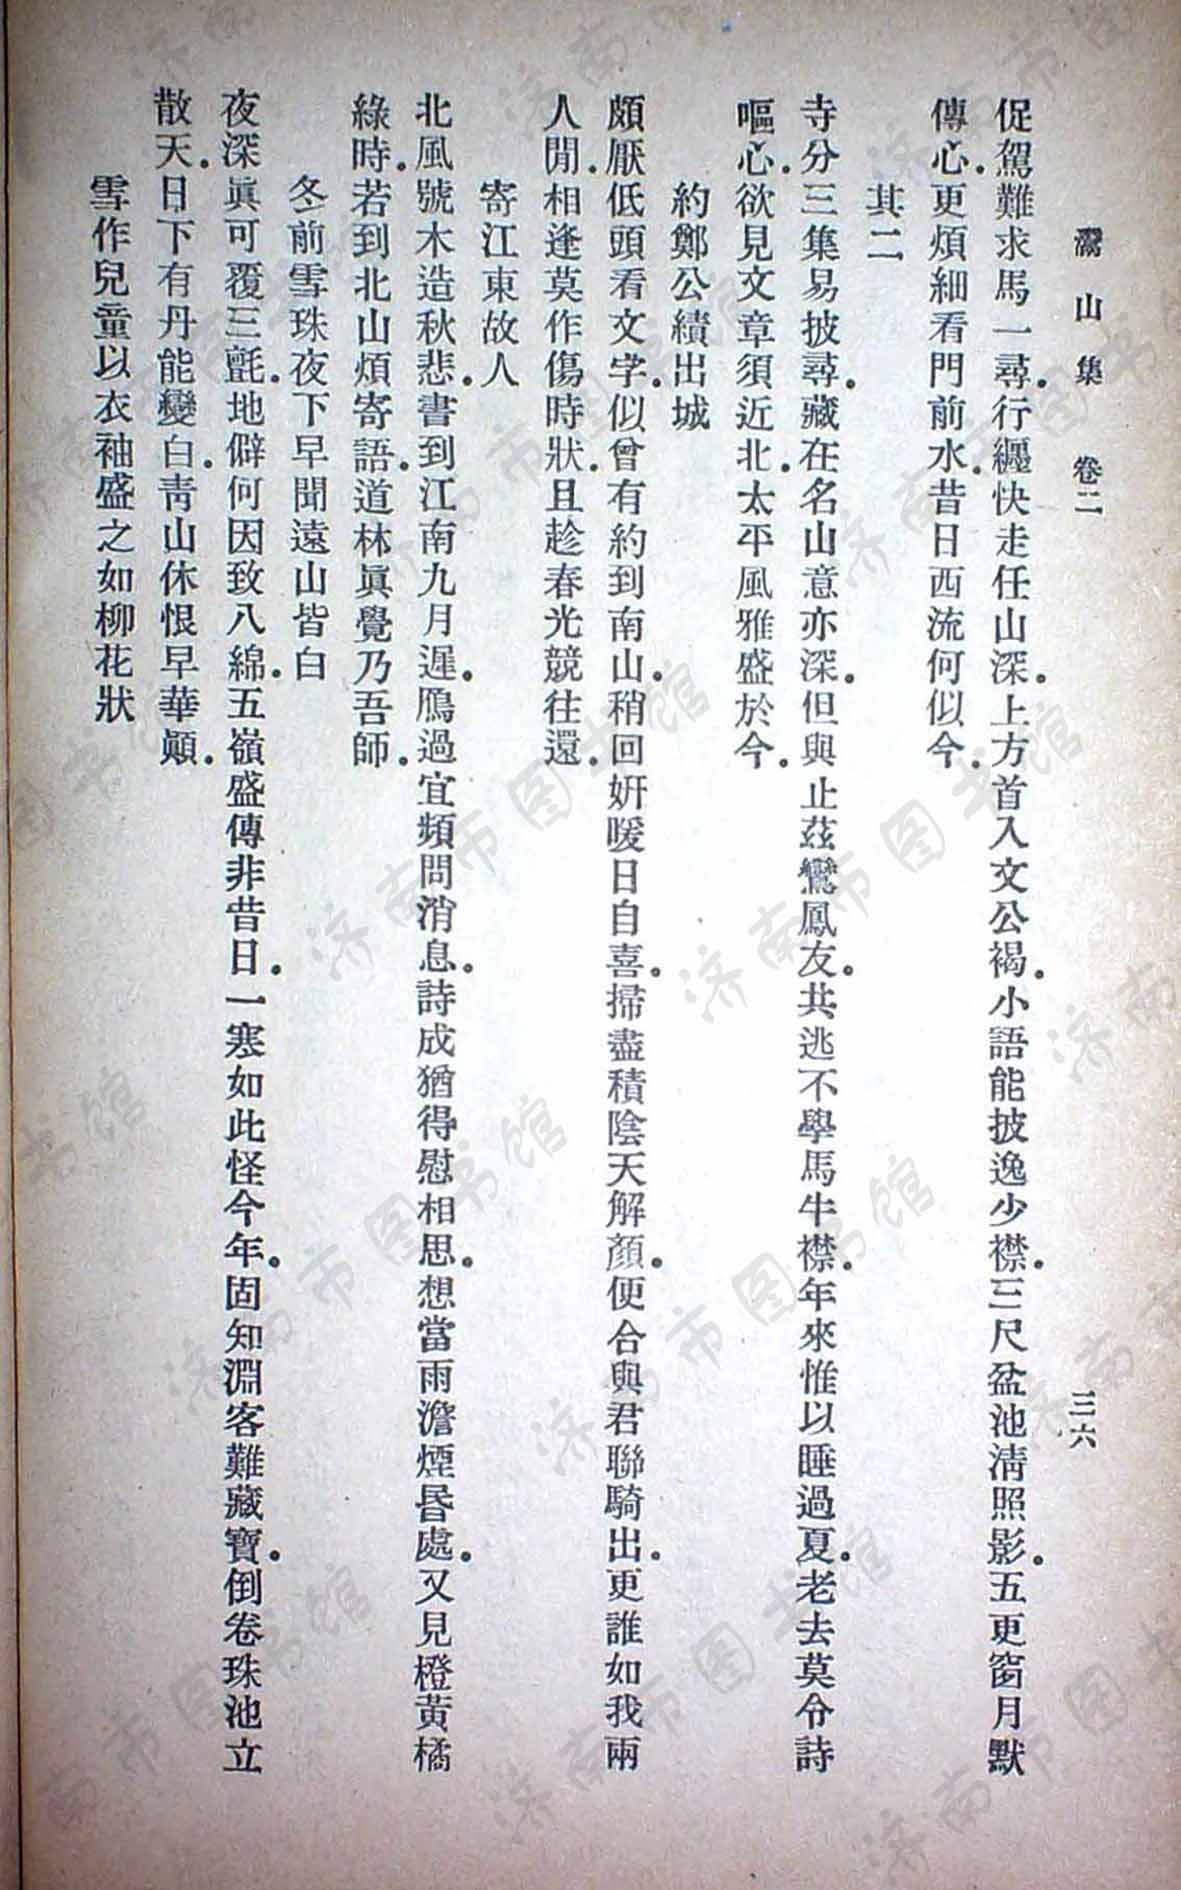 灊山集　卷二　三六
促駕難求馬一尋。行纏快走任山深。上方首入文公褐。小語能披逸少襟。三尺盆池清照影。五更窗月默
傳心。更煩細看門前水。昔日西流何似今。
其二
寺分三集易披尋。藏在名山意亦深。但與止茲鸞鳳友。共逃不學馬牛襟。年來惟以睡過夏。老去莫令詩
嘔心。欲見文章須近北。太平風雅盛於今。
約鄭公績出城
頗厭低頭看文字。似曾有約到南山。稍回妍暖日自喜。掃盡積陰天解顏。便合與君聯騎出。更誰如我兩
人閒。相逢莫作傷時狀。且趁春光競往還。
寄江東故人
北風號木造秋悲。書到江南九月遲。鴈過宜頻問消息。詩成猶得慰相思。想當雨澹煙昬處。又見橙黃橘
綠時。若到北山煩寄語。道林眞覺乃吾師。
冬前雪珠夜下早聞遠山皆白
夜深眞可覆三氈。地僻何因致八綿。五嶺盛傳非昔日。一寒如此怪今年。固知淵客難藏寶。倒卷珠池立
散天。日下有丹能變白。青山休恨早華顚。
雪作兒童以衣袖盛之如柳花狀
济南市图书馆